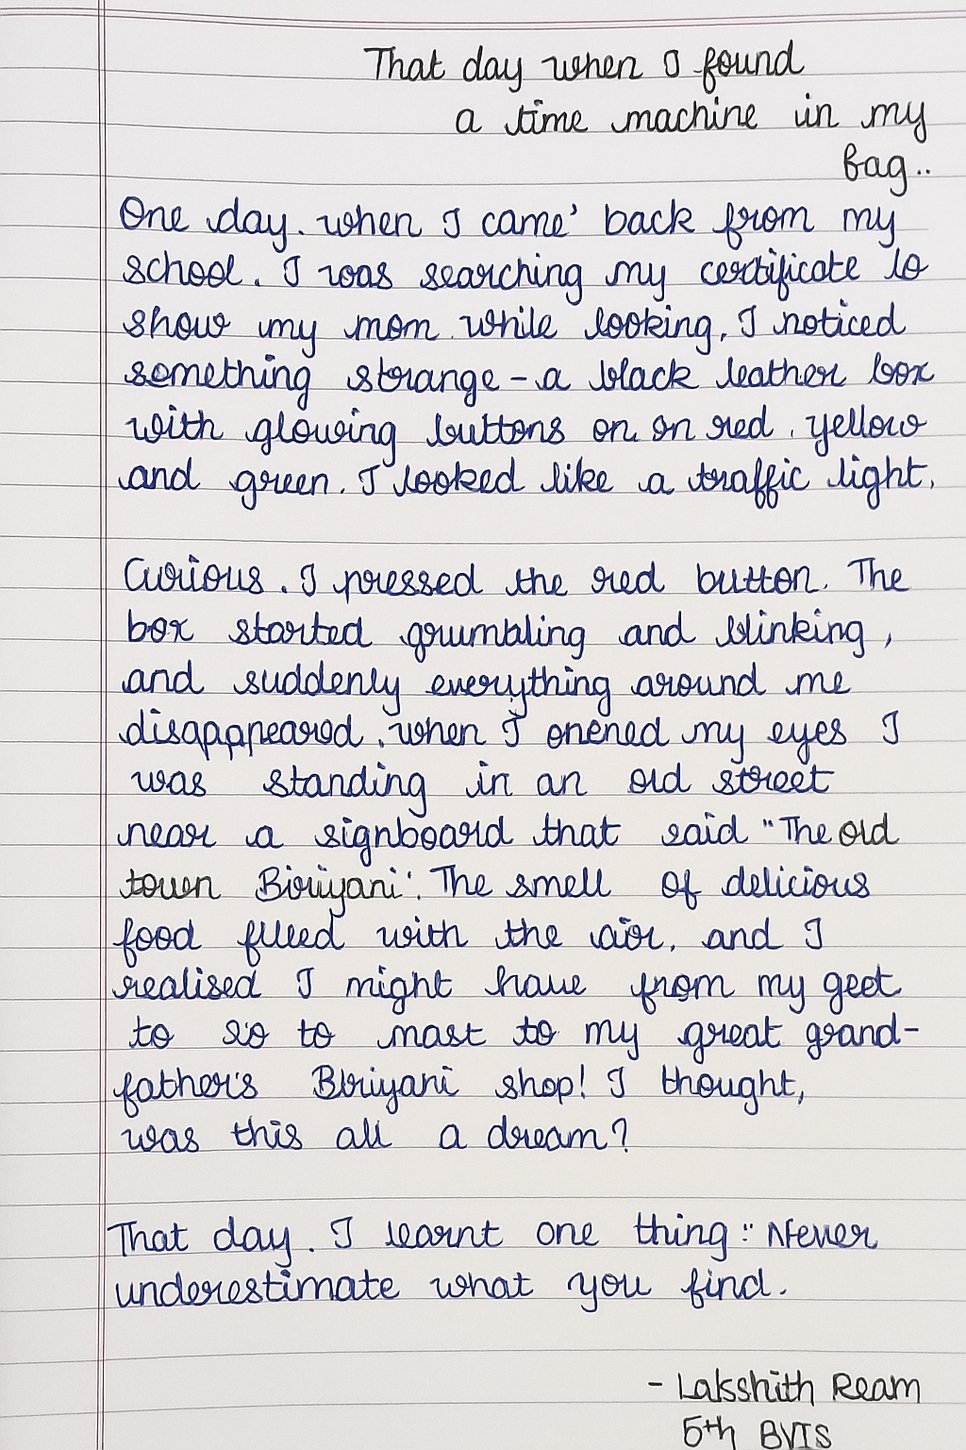 That day when I found
a time machine in my
bag..
One day. when I came' back from my
school. I was searching my certificate to
show my mom. while looking, I noticed
something strange - a black leather box
with glowing buttons on on red. yellow
and green. I looked like a traffic light.
Curious. I pressed the red button. The
box started grumbling and blinking,
and suddenly everything around me
disapppeared. when I onened my eyes I
was standing in an old street
near a signboard that said "The old
town Biriyani'. The smell of delicious
food filled with the air, and I
realised I might have from my geet
to to mast to my great grand-
father's Biriyani shop! I thought,
was this all a dream?
That day. I learnt one thing:" Never
underestimate what you find.
- Lakshith Ream
5th BVIS